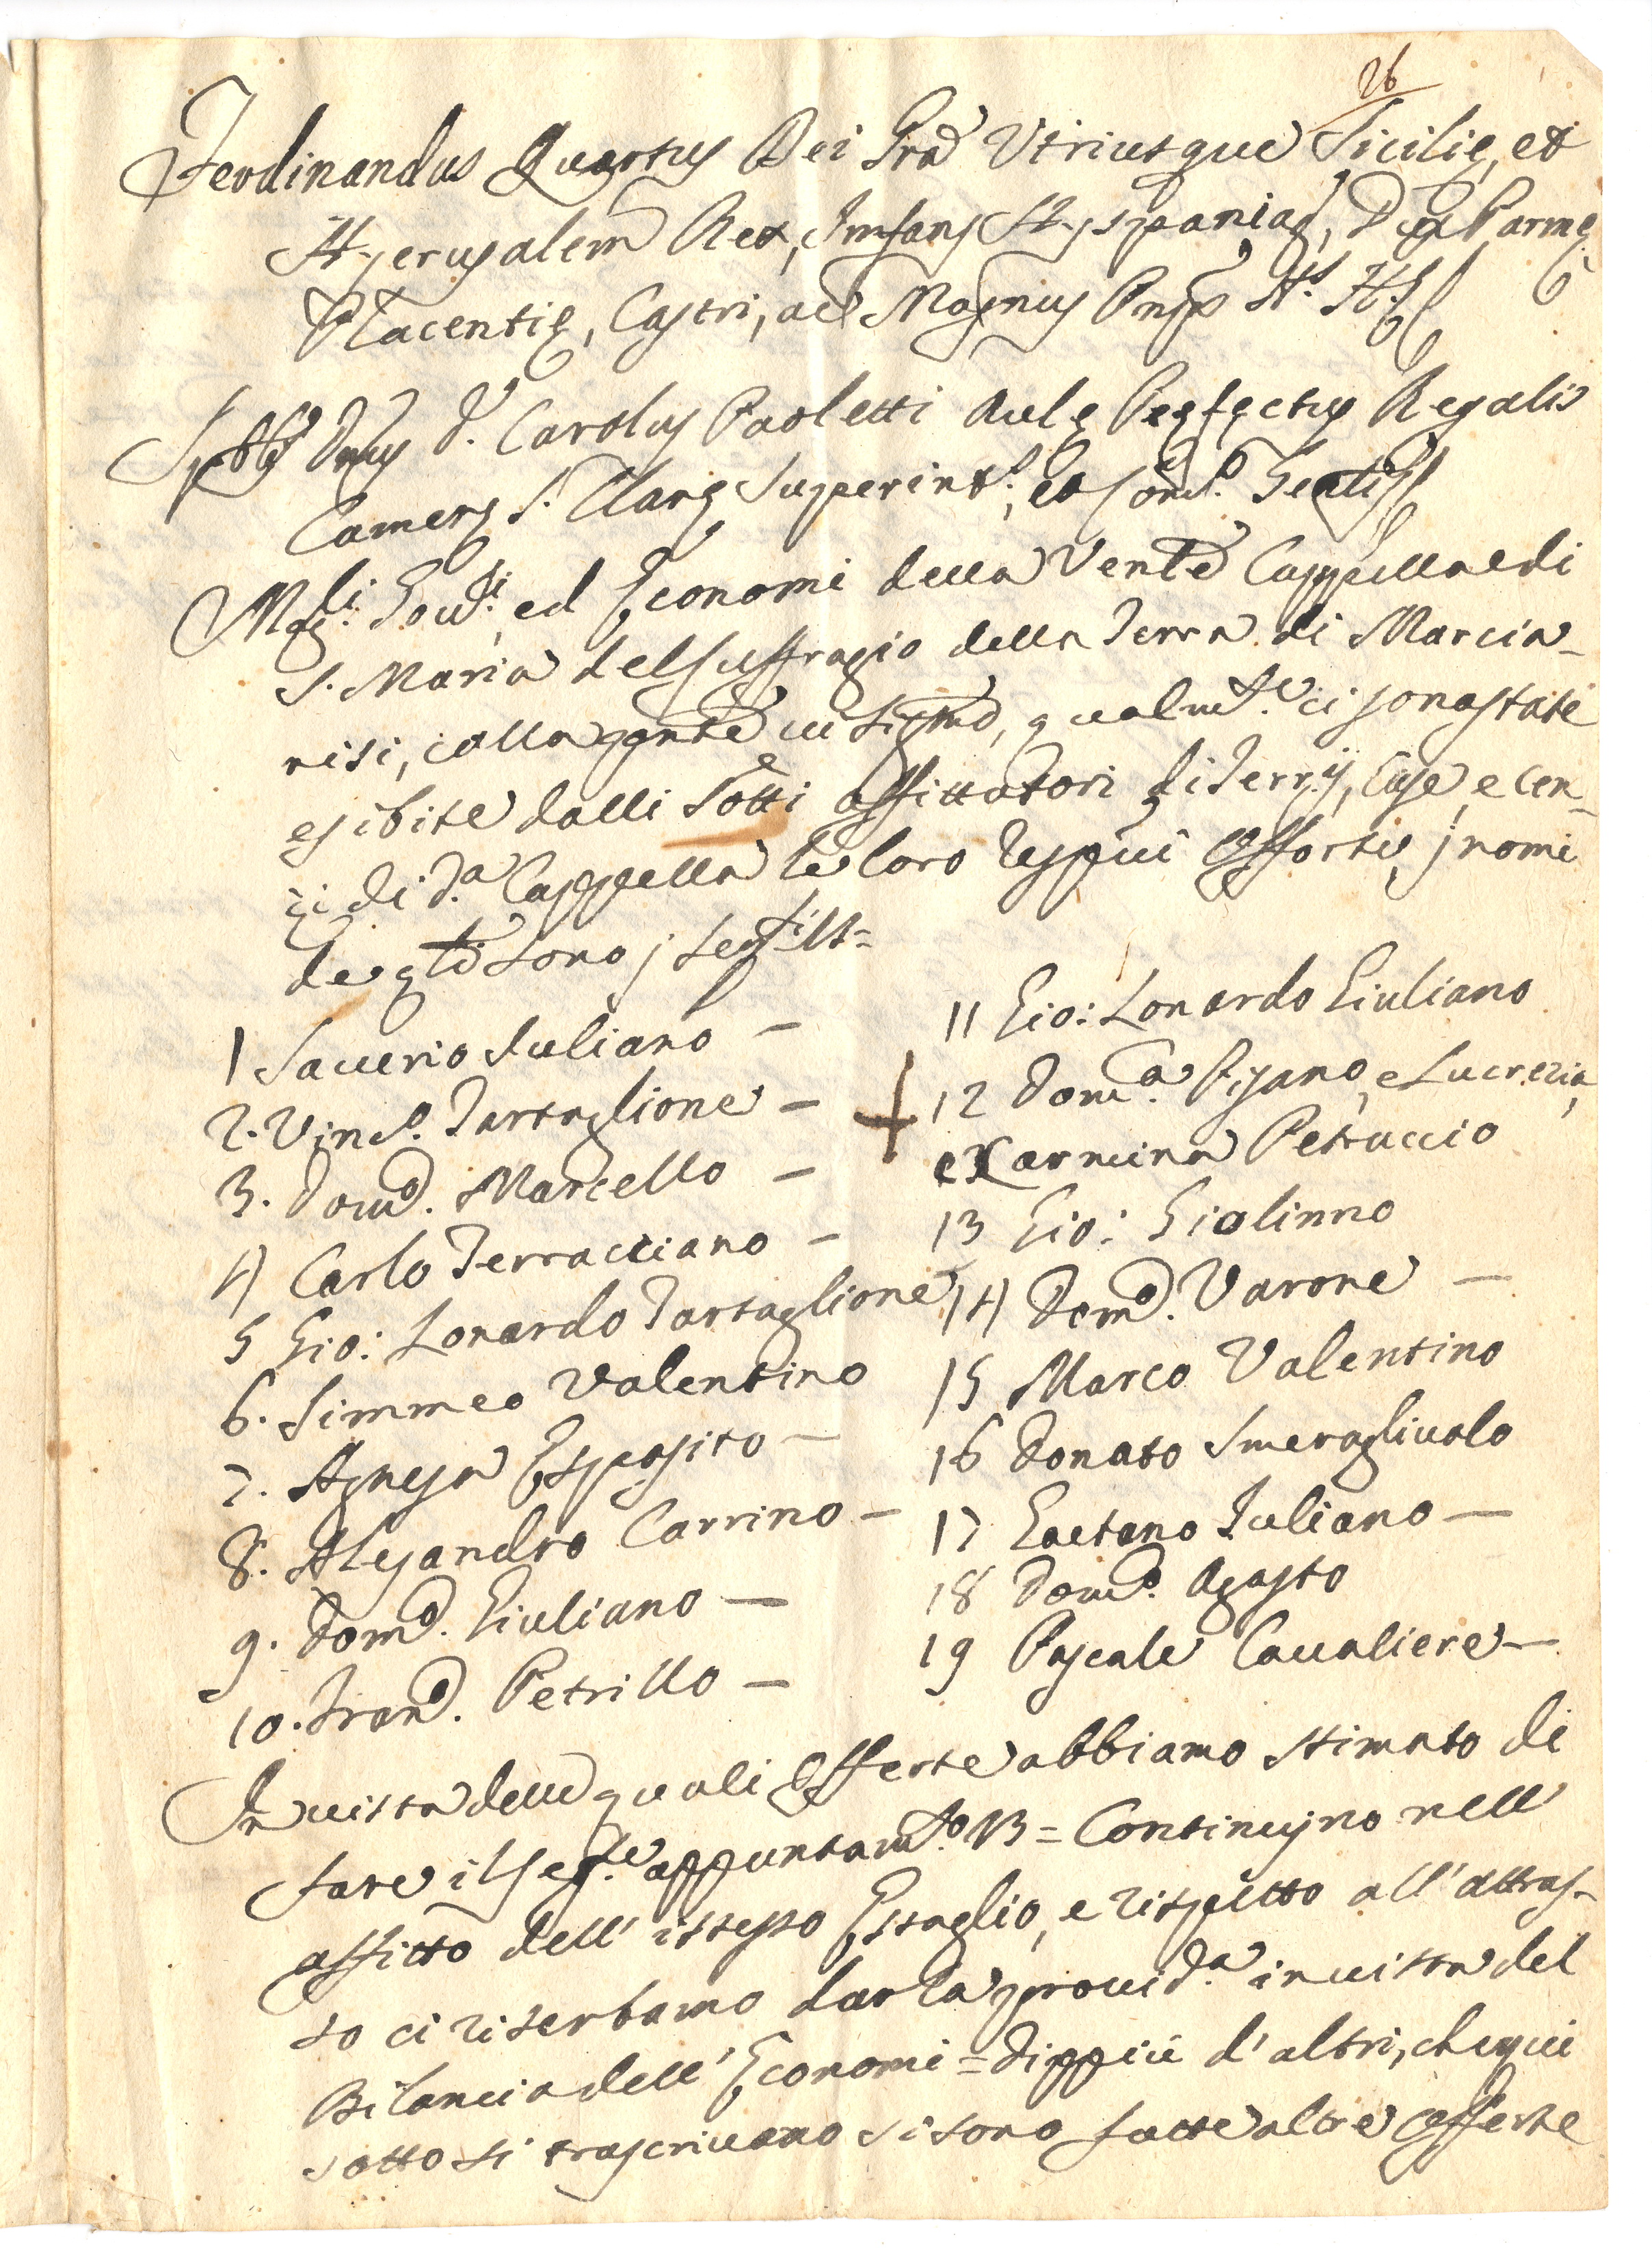 26
Ferdinandus Quartus Dei Gra Utriusque Sicilie, et
Hyerusalem Rex, Infans Hyspaniar, Dux Parme
Placentie, Castri, ac Magnus Pnps
D. Carolus Paoletti Aule Prefectus Regalis
Camere S. Clare Superint.,
Mag.ci Gov.ri, ed Economi della Ven.le Cappella di
S. Maria del Suffragio della Terra di Marcia-
nisi, colla pnte vi, qualm.te ci sono state
esibite dalli Sotti affittatori di Terrij, Case, e Cen-
zi di d.a Cappella le loro respui offerte, j nomi
de qli sono j seg.ti
1 Saverio Iuliano -
2. Vinc.o Tartaglione -
3. Dom.o Martello -
4) Carlo Terracciano -
5 Gio: Lonardo Tartaglione
6. Simmeo Valentino
7. Agnesa Esposito -
8. Alesandro Carrino -
9. Dom.o Giuliano -
10. Fran.o Petrillo -
11 Gio: Lonardo Giuliano
12 Dom.a Pisano, e Lucrezia,
e Carmina Petruccio
13 Gio: Giolinno
14) Dom.o Varone -
15 Marco Valentino
16 Donato Smeragliuolo
17 Gaetano Iuliano -
18 Dom.o Agosto
19 Pascale Cavaliere -
In vista delle quali offerte abbiamo stimato di
fare il seg.te appuntam.to = Continuino nell
affitto dell' istesso Estaglio, e rispetto all' attras-
so ci riserbamo dar la provid.a in vista del
Bilancio dell' Economi = Dippiù d' altri, che qui
sotto si trascriveano si sono fatte altre offerte